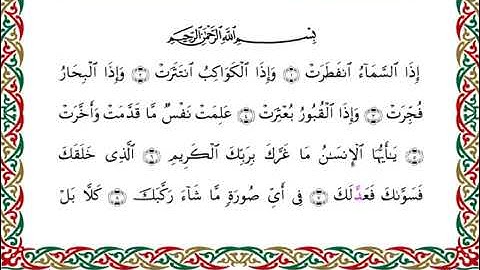 بِسْمِ اللَّهِ الرَّحْمَٰنِ الرَّحِيمِ
إِذَا السَّمَاءُ انفَطَرَتْ ۝١ وَإِذَا الْكَوَاكِبُ انتَثَرَتْ ۝٢ وَإِذَا الْبِحَارُ
فُجِّرَتْ ۝٣ وَإِذَا الْقُبُورُ بُعْثِرَتْ ۝٤ عَلِمَتْ نَفْسٌ مَّا قَدَّمَتْ وَأَخَّرَتْ
۝٥ يَٰأَيُّهَا الْإِنسَٰنُ مَا غَرَّكَ بِرَبِّكَ الْكَرِيمِ ۝٦ الَّذِى خَلَقَكَ
فَسَوَّىٰكَ فَعَدَّلَكَ ۝٧ فِى أَىِّ صُورَةٍ مَّا شَاءَ رَكَّبَكَ ۝٨ كَلَّا بَلْ